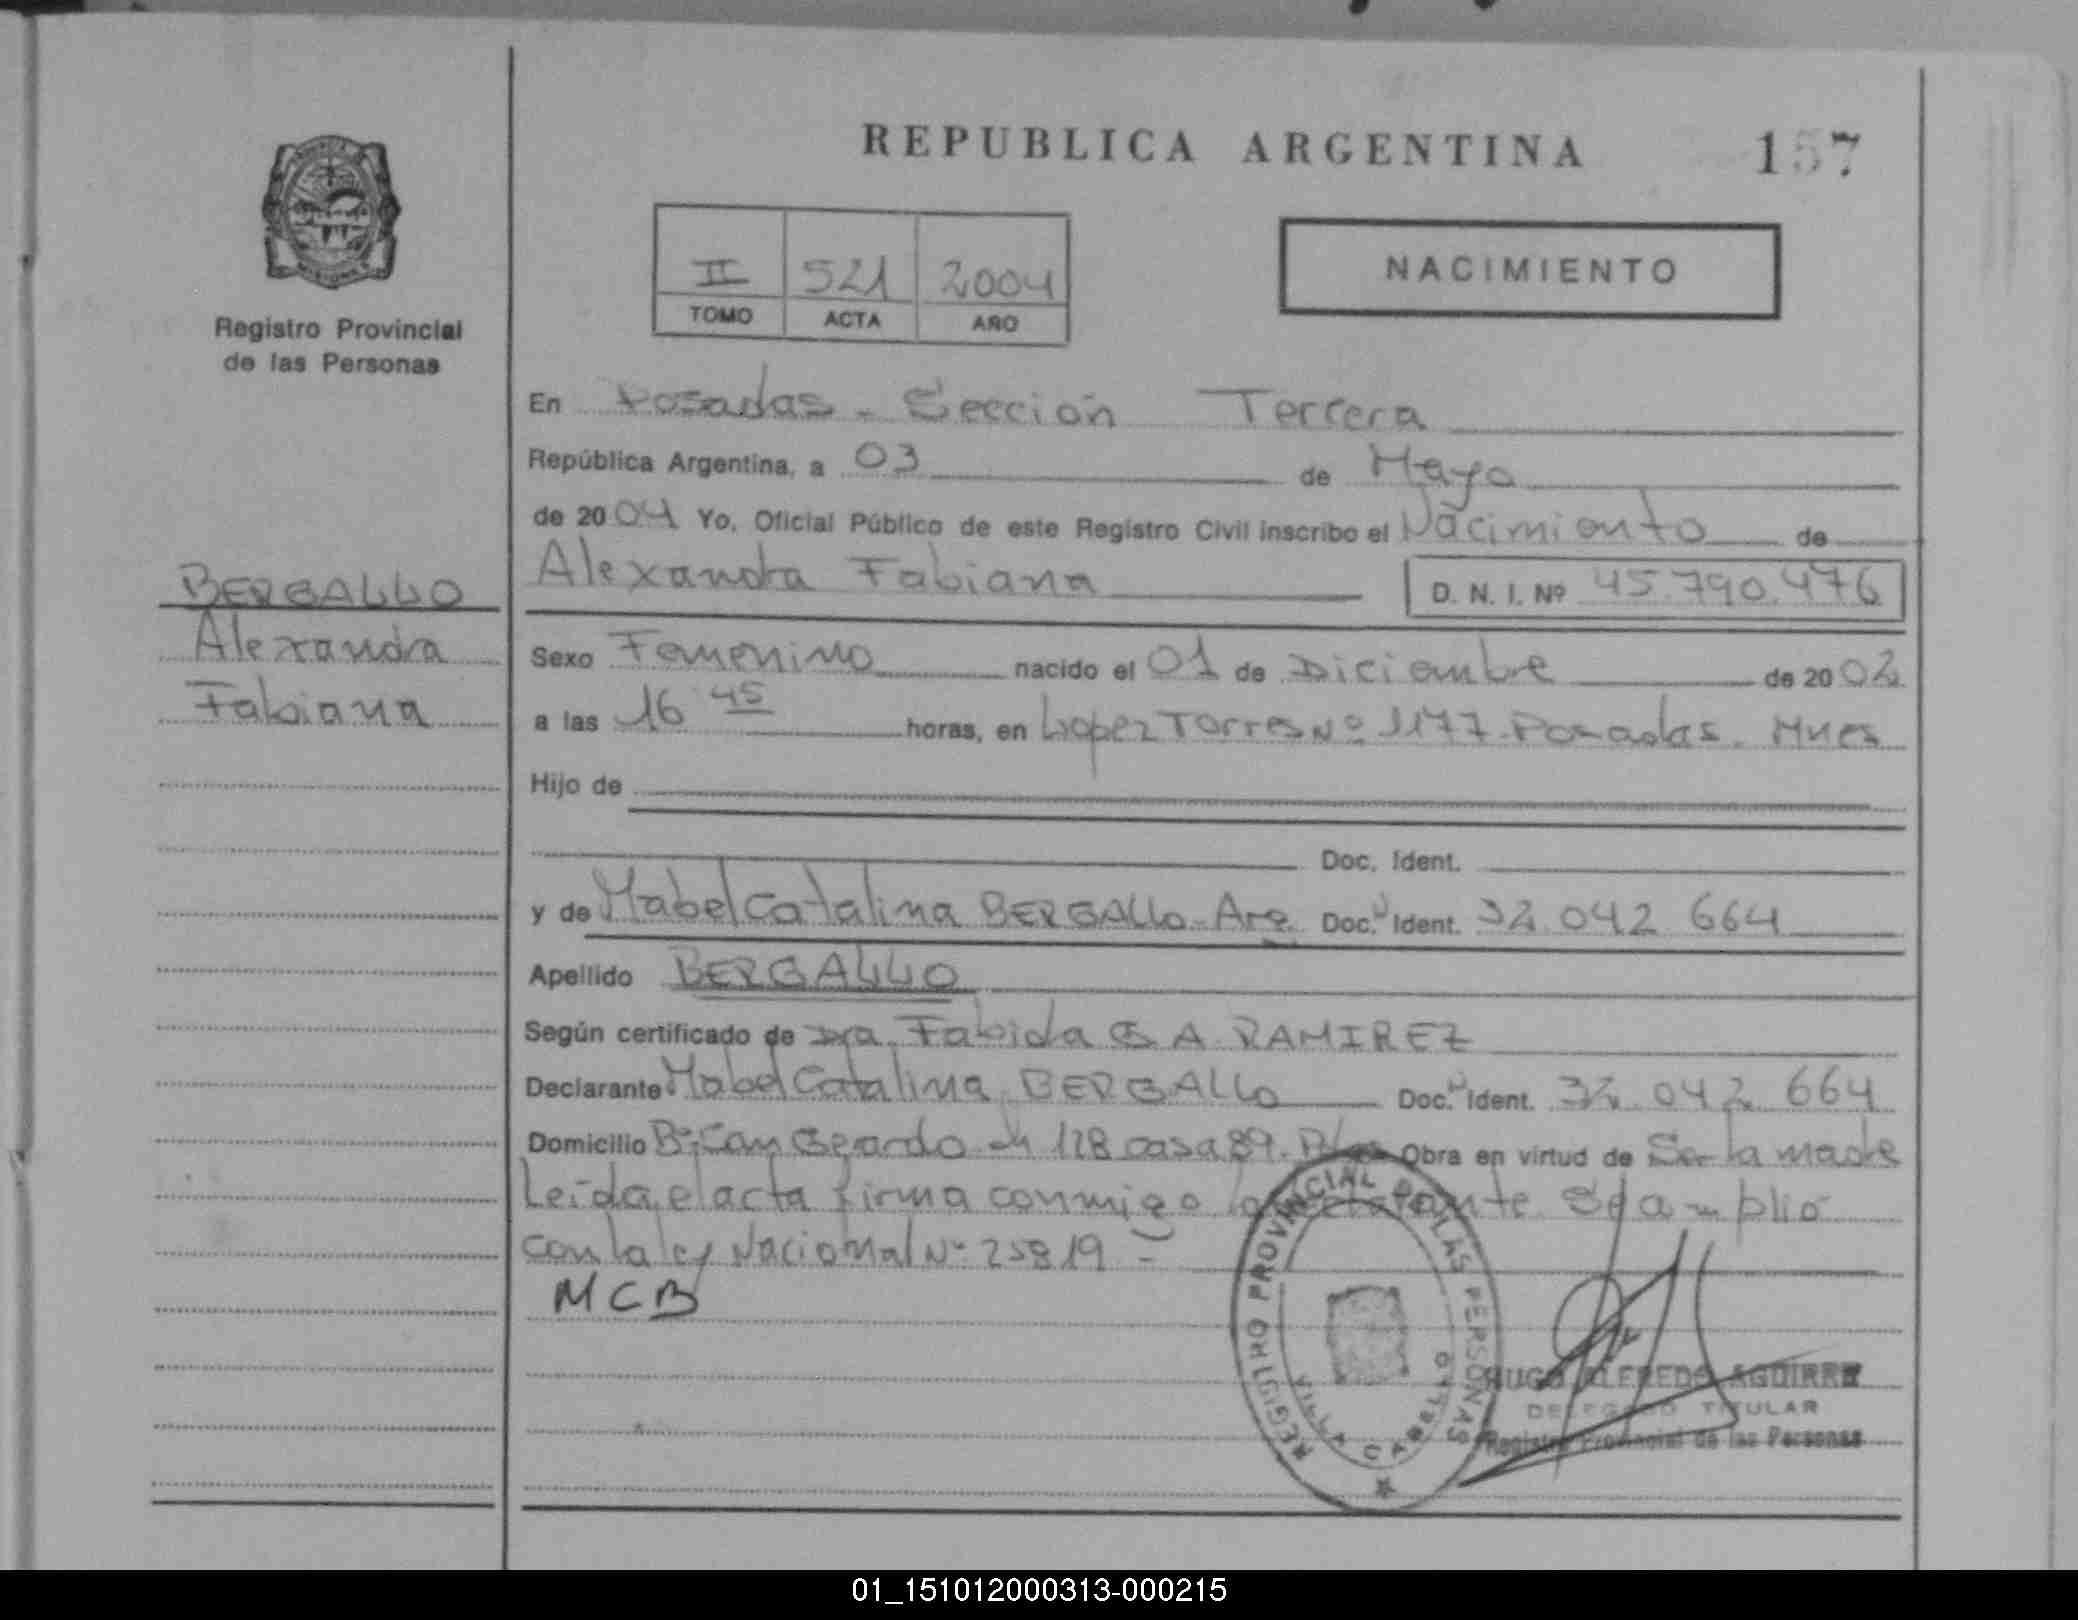 REPUBLICA ARGENTINA 157
II 521 2004
TOMO ACTA AÑO
NACIMIENTO
Registro Provincial
de las Personas
BERGALLO
Alexandra
Fabiana
En Posadas - Sección Tercera
República Argentina, a 03 de Mayo
de 2004 Yo, Oficial Público de este Registro Civil inscribo el Nacimiento de
Alexandra Fabiana D. N. I. Nº 45.790.476
Sexo Femenino nacido el 01 de Diciembre de 2002
a las 16 45 horas, en López Torres Nº 1177. Posadas. Mnes
Hijo de
Doc. Ident.
y de Mabel Catalina BERGALLO - Arg. Doc. Ident. 32 042 664
Apellido BERGALLO
Según certificado de Dra. Fabiola A. RAMIREZ
Declarante Mabel Catalina BERGALLO Doc. Ident. 32 042 664
Domicilio 128 casa 89. Obra en virtud de Ser la madre
Leída el acta firma conmigo la declarante Se amplió
con la ley Nacional Nº 25819 -
MCB
REGISTRO PROVINCIAL DE LAS PERSONAS
VILLA CABELLO
HUGO ALFREDO AGUIRRE
DELEGADO TITULAR
Registro Provincial de las Personas
01_151012000313-000215